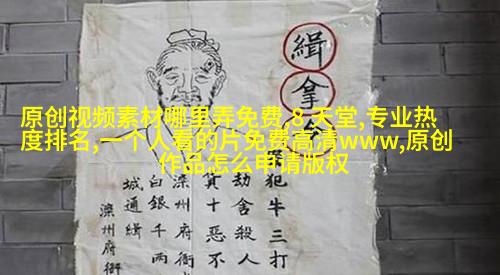 原创视频素材哪里弄免费,8 天堂,专业热
度排名,一个人看的片免费高清www,原创
作品怎么申请版权
緝拿令
犯牛三打
劫舍殺人
十惡不
滦州府衙
白銀千兩
城通緝
滦州府衙